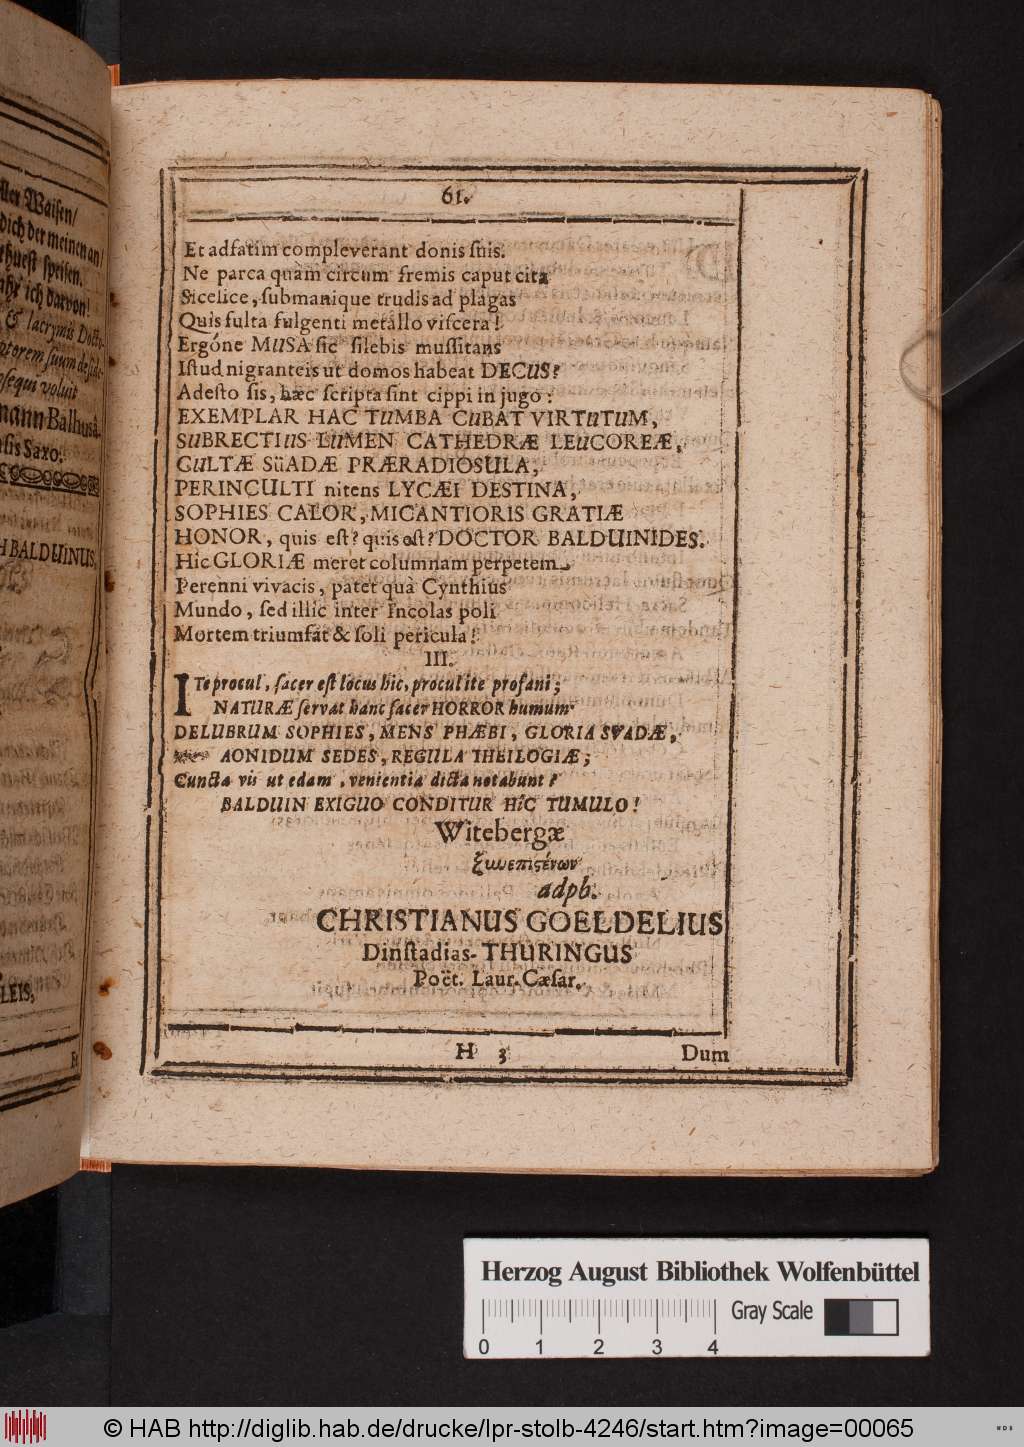 ller Waisen/
dich der meinen an/
speisen.
ich darvon!
& lacrymis Docto-
ptorem suum de side-
osequi voluit
mann Balhusâ-
sis Saxo.
H BALDUINUS,
LEIS,
61.
Et adfatim compleverant donis suis.
Ne parca quàm circum fremis caput cita
Sicelice, submanique trudis ad plagas
Quis fulta fulgenti metallo viscera!
Ergóne MUSA sic silebis mussitans
Istud nigranteis ut domos habeat DECUS?
Adesto sis, hæc scripta sint cippi in jugo:
EXEMPLAR HAC TUMBA CUBAT VIRTUTUM,
SUBRECTIUS LUMEN CATHEDRÆ LEUCOREÆ,
CULTÆ SüADÆ PRÆRADIOSULA,
PERINCULTI nitens LYCÆI DESTINA,
SOPHIES CALOR, MICANTIORIS GRATIÆ
HONOR, quis est? quis est? DOCTOR BALDUINIDES.
Hic GLORIÆ meret columnam perpetem
Perenni vivacis, patet quà Cynthius
Mundo, sed illic inter Incolas poli
Mortem triumfat & soli pericula!
III.
ITe procul, sacer est locus hic, procul ite profani;
NATURÆ servat hanc sacer HORROR humum
DELUBRUM SOPHIES, MENS PHÆBI, GLORIA SVADÆ,
AONIDUM SEDES, REGULA THEILOGIÆ;
Cuncta vis ut edam, venientia dicta notabunt?
BALDUIN EXIGUO CONDITUR HîC TUMULO!
Witebergæ
ξυνεπιςένων
adpb.
CHRISTIANUS GOELDELIUS
Dinstadias-THURINGUS
Poët. Laur. Cæsar.
H 3 Dum
Herzog August Bibliothek Wolfenbüttel
Gray Scale
0 1 2 3 4
© HAB http://diglib.hab.de/drucke/lpr-stolb-4246/start.htm?image=00065